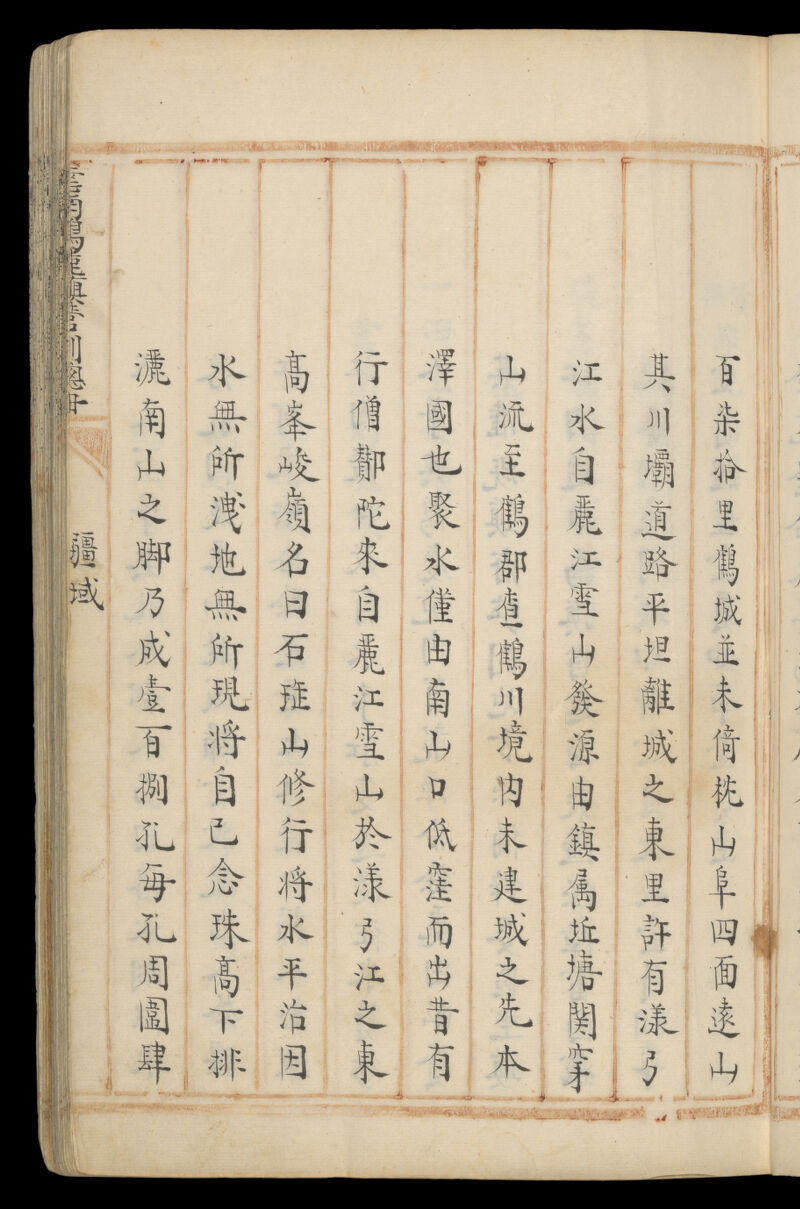 百柒拾里鶴城並未倚枕山阜四面遠山
其川壩道路平坦離城之東里許有漾弓
江水自麗江雪山發源由鎮属坵塘関穿
山流至鶴郡查鶴川境内未建城之先本
澤國也聚水僅由南山口低窪而出昔有
行僧鄼陀來自麗江雪山於漾弓江之東
高峯峻嶺名曰石寳山修行将水平治因
水無所洩地無所現将自己念珠高下排
灑南山之脚乃成壹百捌孔每孔周圍肆
疆域